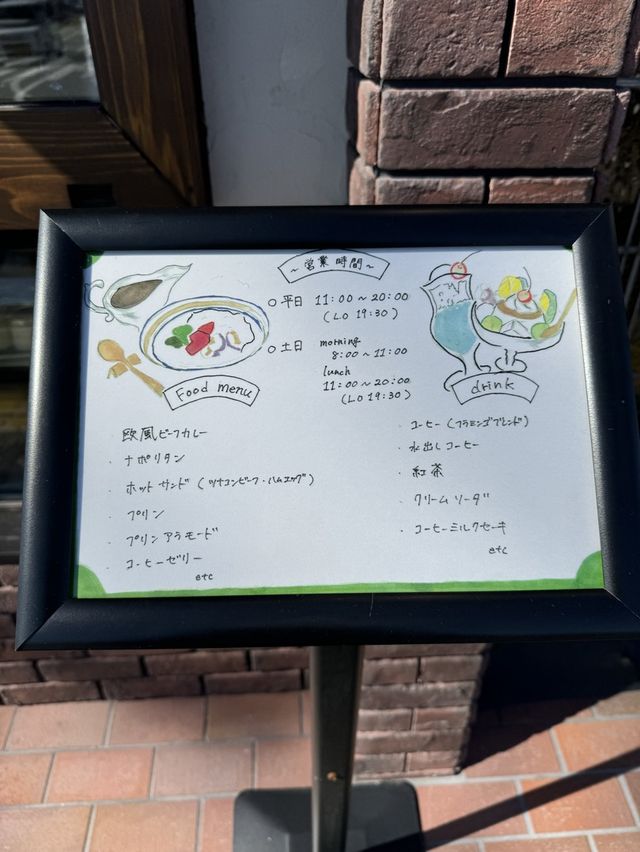 ～営業時間～
○平日 11:00～20:00
(LO 19:30)
○土日 morning
8:00～11:00
lunch
11:00～20:00
(LO 19:30)
Food menu
・欧風ビーフカレー
・ナポリタン
・ホットサンド(ツナコンビーフ・ハムエッグ)
・プリン
・プリンアラモード
・コーヒーゼリー
etc
drink
・コーヒー(フラミンゴブレンド)
・水出しコーヒー
・紅茶
・クリームソーダ
・コーヒーミルクセーキ
etc